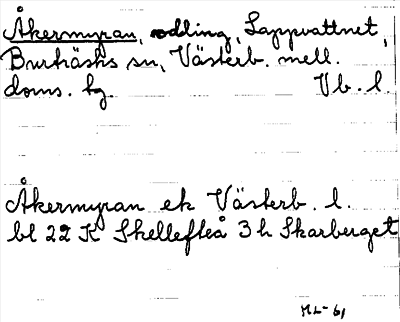 Åkermyran, odling, Lappvattnet,
Burträsks sn, Västerb. mell.
doms. hg. Vb. l.
Åkermyran ek Västerb. l.
bl 22 K Skellefteå 3 h Skarberget
HL-61